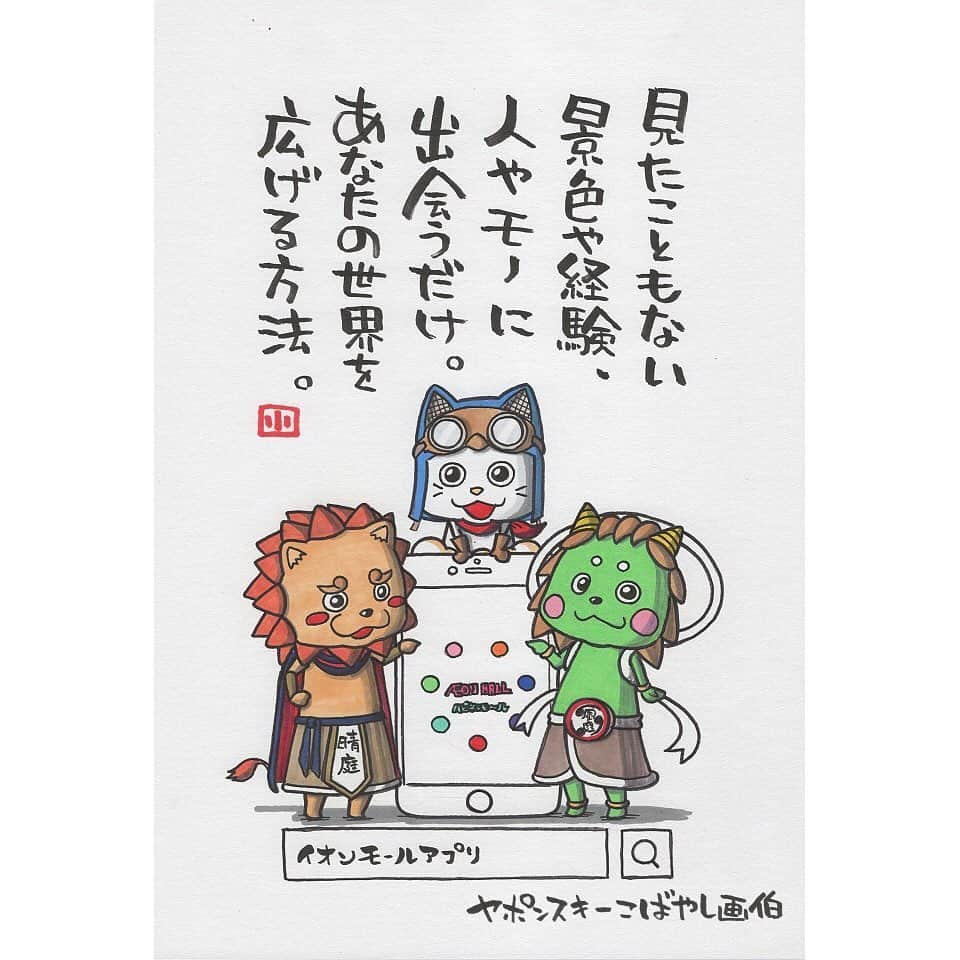 見たこともない
景色や経験、
人やモノに
出会うだけ。
あなたの世界を
広げる方法。
小
晴庭
風庭
ÆON MALL
ハピネスモール
イオンモールアプリ
ヤポンスキーこばやし画伯